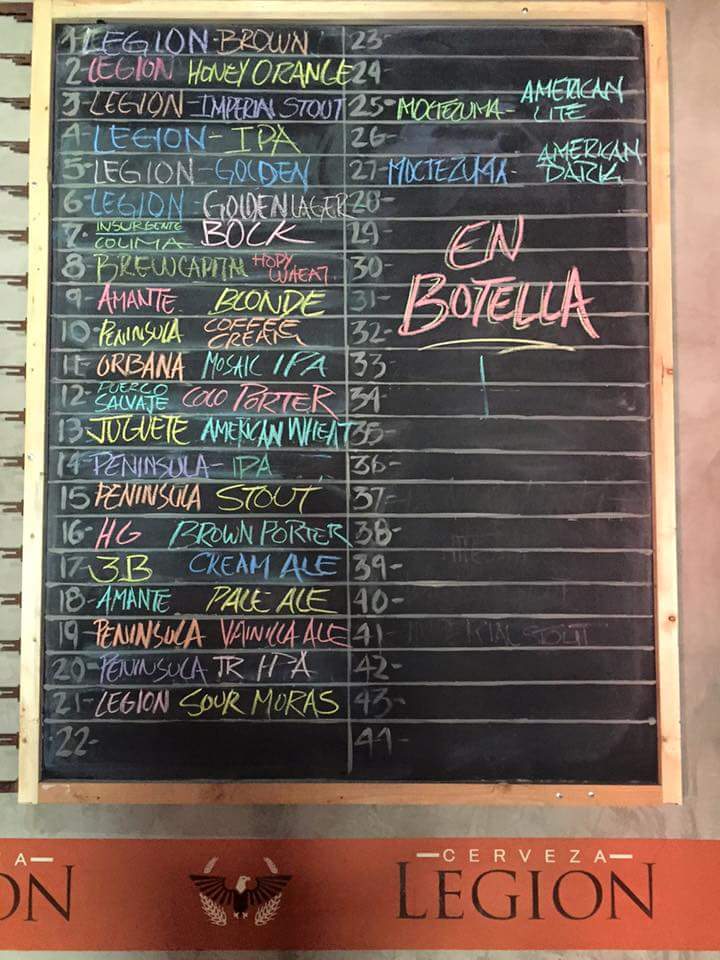 1-LEGION-BROWN
2-LEGION HONEY ORANGE
3-LEGION-IMPERIAL STOUT
4-LEGION-IPA
5-LEGION-GOLDEN
6-LEGION-GOLDEN LAGER
7-INSURGENTE COLIMA BOCK
8-BREWCAPITAL HOPY WHEAT
9-AMANTE BLONDE
10-PENINSULA COFFEE CREAM
11-URBANA MOSAIC IPA
12-PUERCO SALVAJE COCO PORTER
13-JUGUETE AMERICAN WHEAT
14-PENINSULA-IPA
15-PENINSULA STOUT
16-HG BROWN PORTER
17-3B CREAM ALE
18-AMANTE PALE ALE
19-PENINSULA VAINILLA ALE
20-PENINSULA JR IPA
21-LEGION SOUR MORAS
22-
23-
24-
25-MOCTEZUMA-AMERICAN LITE
26-
27-MOCTEZUMA-AMERICAN DARK
28-
29-
30-
31-
32-
33-
34-
35-
36-
37-
38-
39-
40-
41-
42-
43-
44-
EN
BOTELLA
A
ON
CERVEZA
LEGION